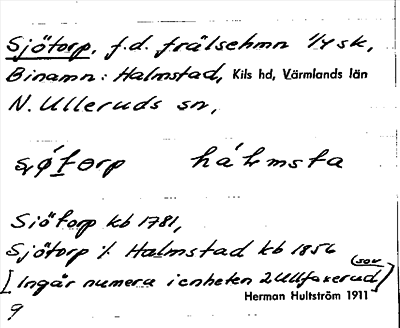 Sjötorp, f.d. frälsehmn 1/4 sk,
Binamn: Halmstad, Kils hd, Värmlands län
N. Ulleruds sn,
hálmsta
Sjötorp kb 1781,
Sjötorp % Halmstad kb 1856
[Ingår numera i enheten 2 Ullfaxerud]
Herman Hultström 1911
9